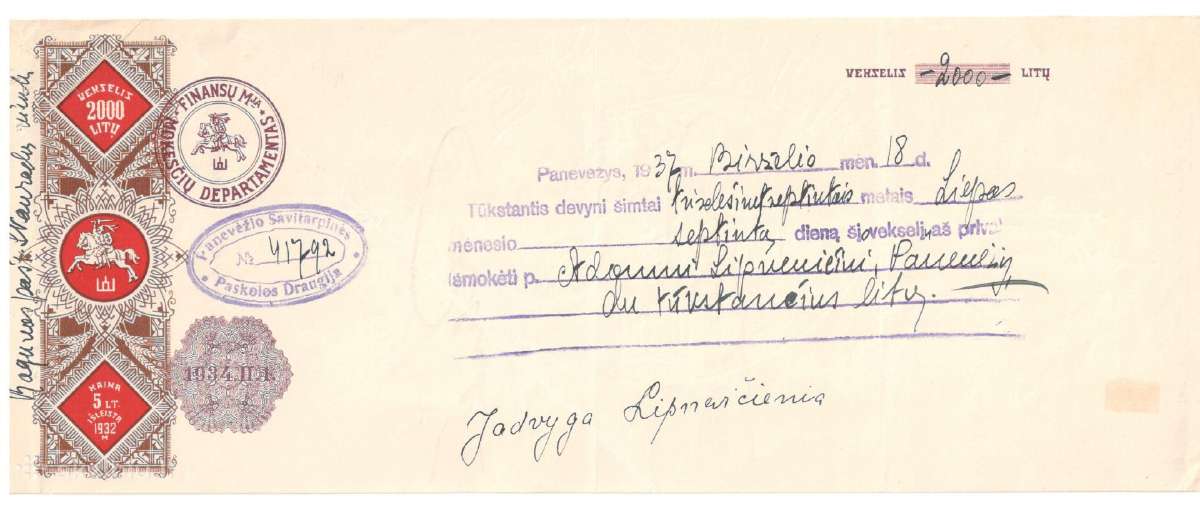 VEKSELIS
2000
LITŲ
KAINA
5 LT.
IŠLEISTA
1932
M
FINANSŲ M-JA
MOKESČIŲ DEPARTAMENTAS
Panevėžio Savitarpinės
№ 41792
Paskolos Draugija
1934.II.1.
VEKSELIS -2000- LITŲ
Panevėžys, 1937 m. Birželio mėn. 18 d.
Tūkstantis devyni šimtai trisdešimt septintais metais Liepos
mėnesio septintą dieną šį vekselį aš priva
išmokėti p. Adomui Lipnevičiui, Panevėžy
du tūkstančius litų.
Jadvyga Lipnevičienia